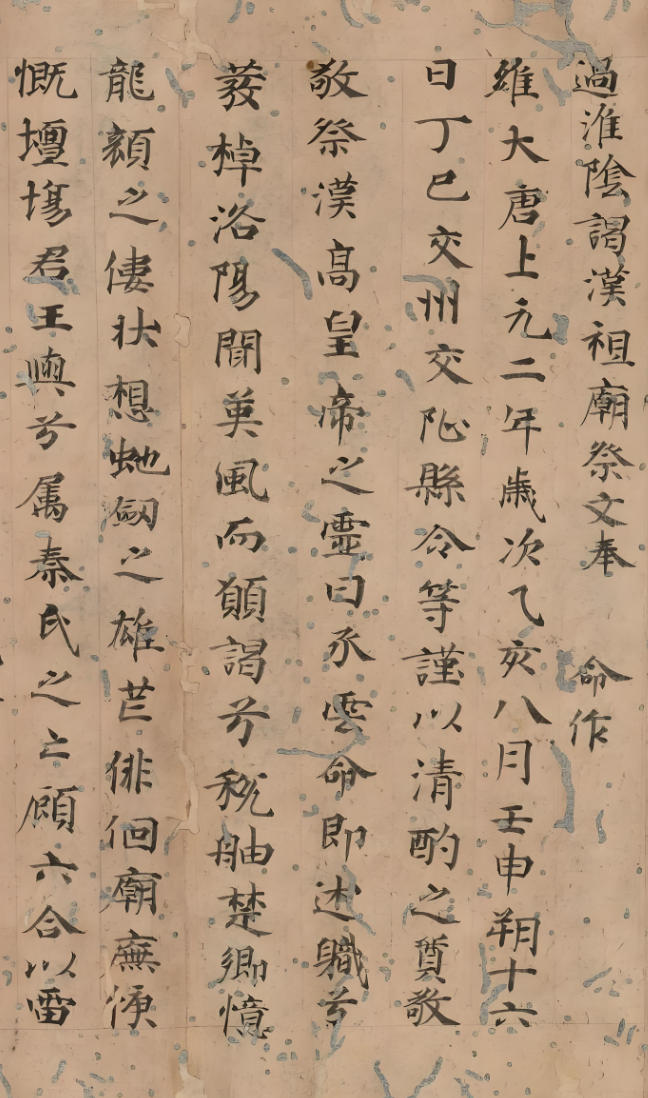 過淮陰謁漢祖廟祭文奉 命作
維大唐上元二年歲次乙亥八月壬申朔十六
日丁巳交州交阯縣令等謹以清酌之奠敬
敬祭漢高皇帝之靈曰承雲命即述職兮
發棹洛陽聞英風而願謁兮稅舳楚鄉憶
龍顏之偉狀想虵劔之雄芒俳佪廟廡悽
慨壇場君王輿兮属秦氏之亡顧六合以雷